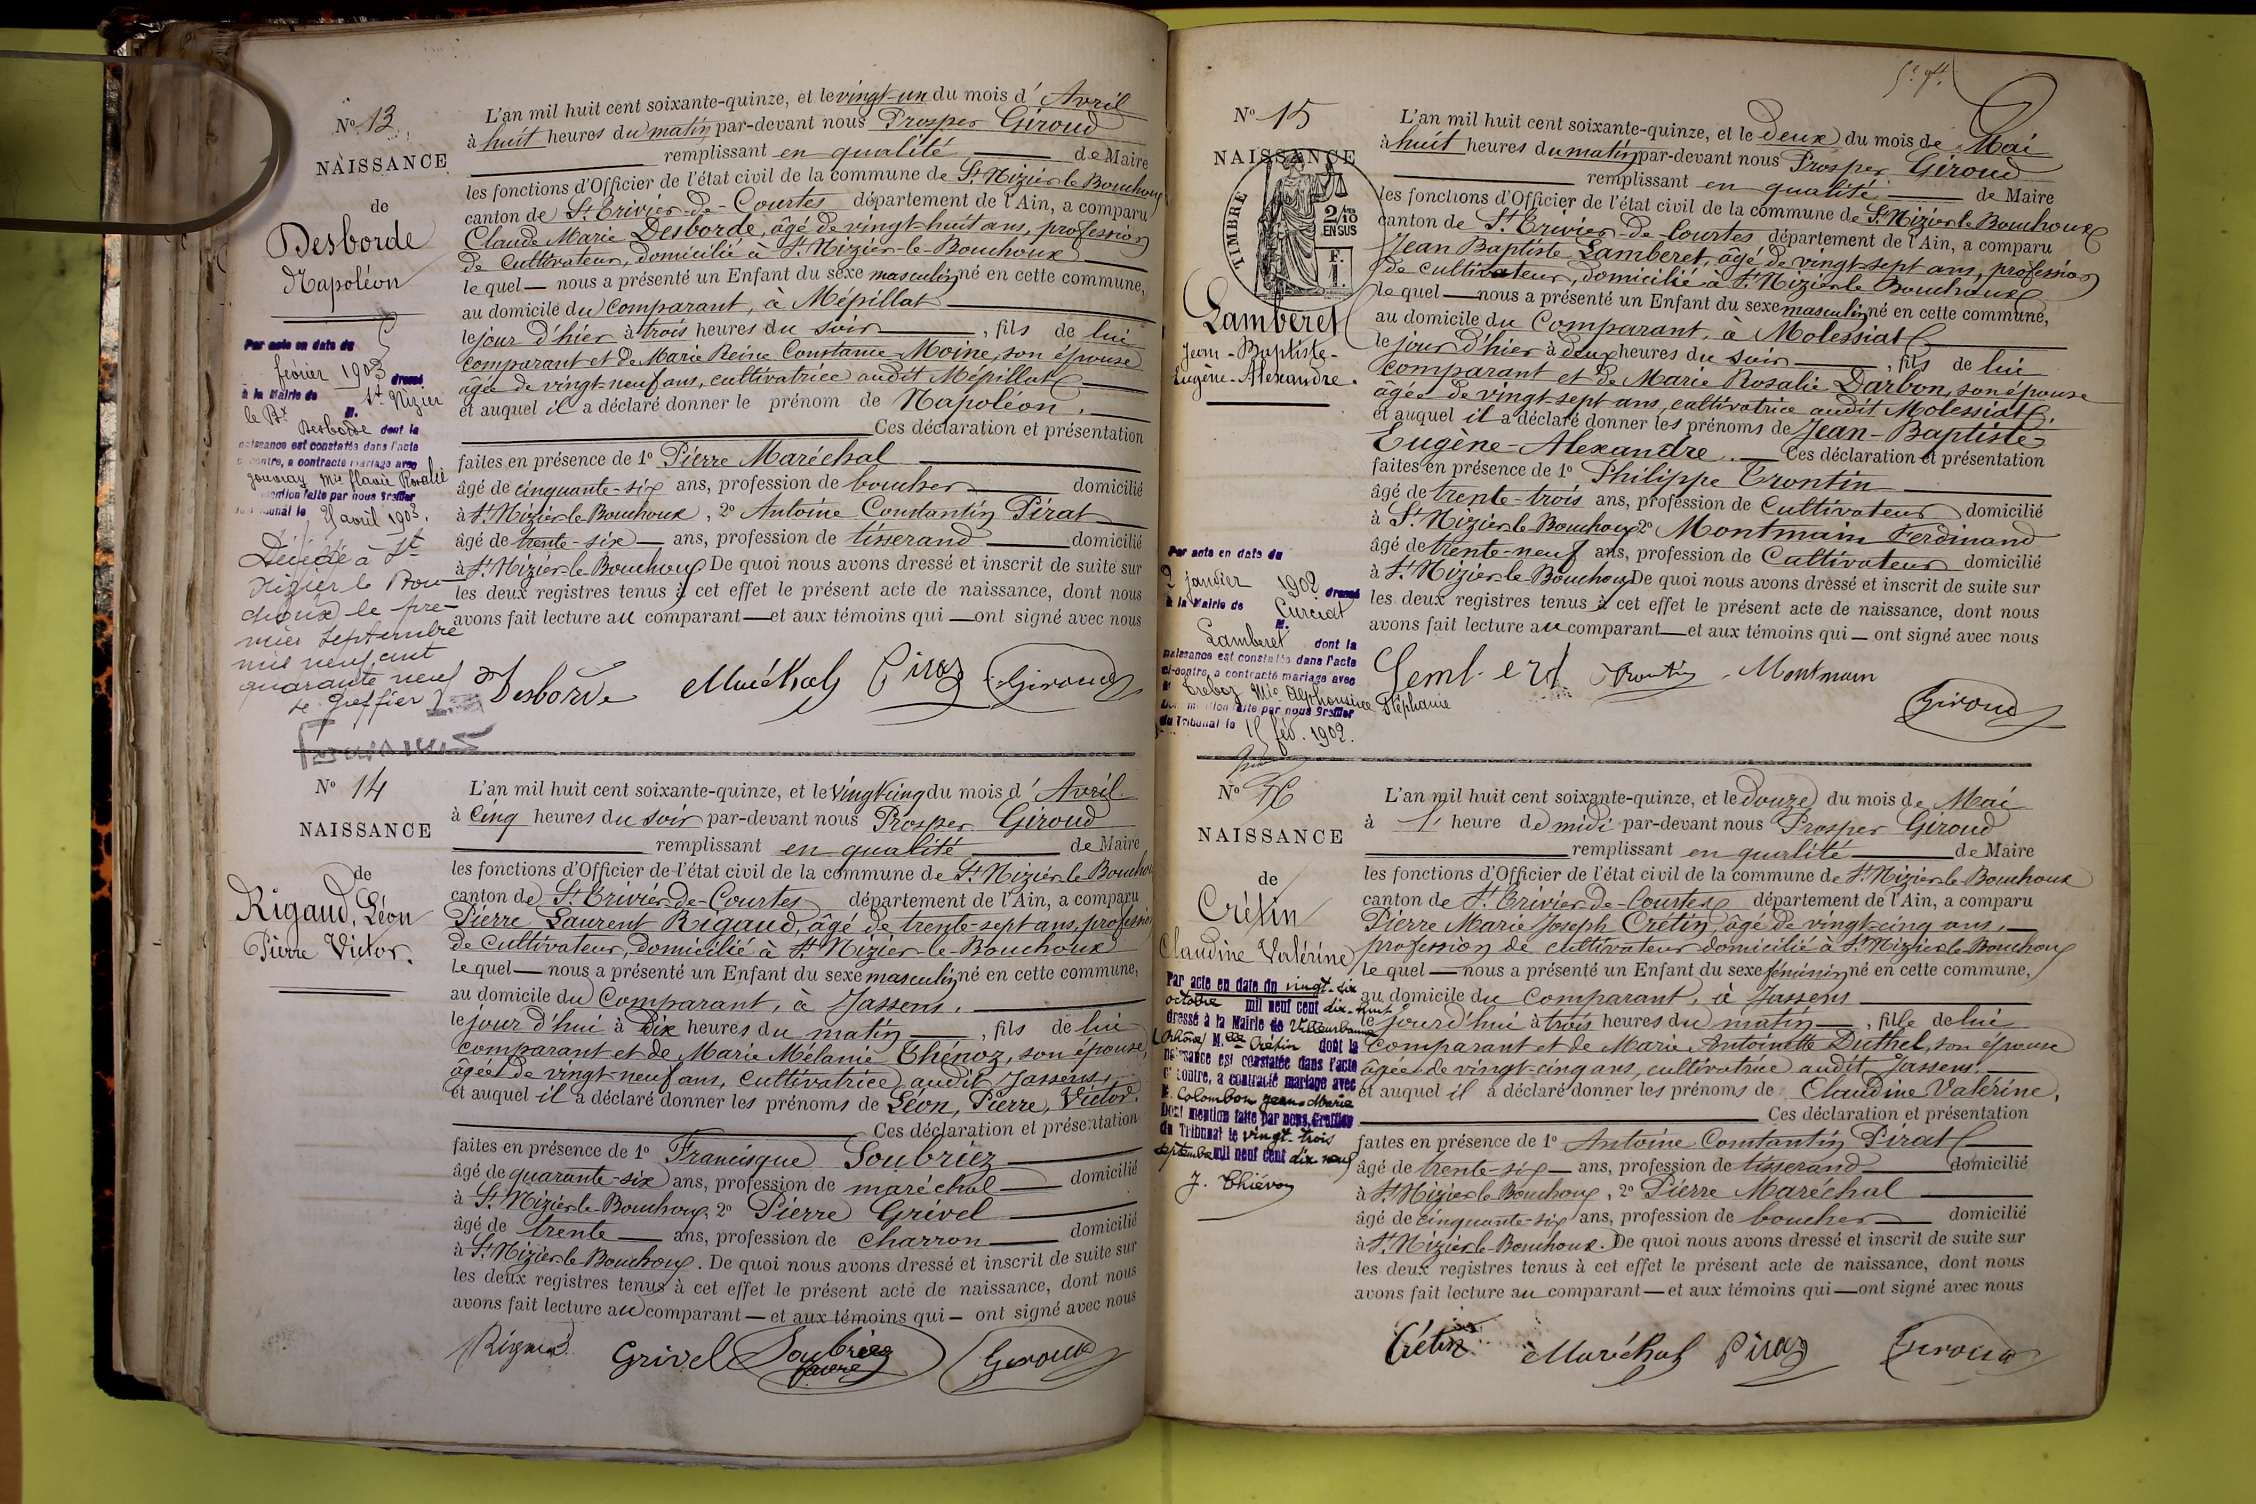 No 13
NAISSANCE
de
Desborde
Napoléon
Par acte en date du
février 1903 dressé
à la Mairie de St Nizier
le Bx M.
Desborde dont la
naissance est constatée dans l'acte
ci-contre, a contracté mariage avec
gouvray Mie flavie Rosalie
mention faite par nous Greffier
du Tribunal le avril 1903.
Décédé à St
Nizier le Bou-
choux le pre-
mier Septembre
mil neuf cent
quarante neuf
Le Greffier
L'an mil huit cent soixante-quinze, et le vingt-un du mois d'Avril
à huit heures du matin par-devant nous Prosper Giroud
remplissant en qualité de Maire
les fonctions d'Officier de l'état civil de la commune de St Nizier le Bouchoux
canton de St Trivier-de-Courtes département de l'Ain, a comparu
Claude Marie Desborde, âgé de vingt-huit ans, profession
de cultivateur, domicilié à St Nizier-le-Bouchoux
lequel — nous a présenté un Enfant du sexe masculin né en cette commune,
au domicile du comparant, à Mépillat
le jour d'hier à trois heures du soir, fils de lui
comparant et de Marie Reine Constance Moine, son épouse
âgée de vingt-neuf ans, cultivatrice audit Mépillat
et auquel il a déclaré donner le prénom de Napoléon.
Ces déclaration et présentation
faites en présence de 1o Pierre Maréchal
âgé de cinquante-six ans, profession de boucher domicilié
à St Nizier le Bouchoux, 2o Antoine Constantin Pirat
âgé de trente-six — ans, profession de tisserand domicilié
à St Nizier-le-Bouchoux De quoi nous avons dressé et inscrit de suite sur
les deux registres tenus à cet effet le présent acte de naissance, dont nous
avons fait lecture au comparant — et aux témoins qui — ont signé avec nous
Desborde Maréchal Pirat Giroud
No 14
NAISSANCE
de
Rigaud, Léon
Pierre Victor.
L'an mil huit cent soixante-quinze, et le vingt cinq du mois d'Avril
à cinq heures du soir par-devant nous Prosper Giroud
remplissant en qualité de Maire
les fonctions d'Officier de l'état civil de la commune de St Nizier le Bouchoux
canton de St Trivier-de-Courtes département de l'Ain, a comparu
Pierre Laurent Rigaud, âgé de trente-sept ans, profession
de cultivateur, domicilié à St Nizier-le-Bouchoux
lequel — nous a présenté un Enfant du sexe masculin né en cette commune,
au domicile du Comparant, à Jassens.
le jour d'hui à dix heures du matin, fils de lui
comparant et de Marie Mélanie Thénoz, son épouse,
âgée de vingt-neuf ans, cultivatrice audit Jassens,
et auquel il a déclaré donner les prénoms de Léon, Pierre, Victor.
Ces déclaration et présentation
faites en présence de 1o Francisque Soubriez
âgé de quarante-six ans, profession de maréchal domicilié
à St Nizier-le-Bouchoux, 2o Pierre Grivel
âgé de trente — ans, profession de charron domicilié
à St Nizier le Bouchoux. De quoi nous avons dressé et inscrit de suite sur
les deux registres tenus à cet effet le présent acte de naissance, dont nous
avons fait lecture au comparant — et aux témoins qui — ont signé avec nous
Rigaud Grivel Soubriez Giroud
No 15
NAISSANCE
TIMBRE
2/10
EN SUS
F.
1.
Lamberet
Jean-Baptiste-
Eugène-Alexandre.
Par acte en date du
2 janvier 1902 dressé
à la Mairie de Curciat
M.
Lamberet dont la
naissance est constatée dans l'acte
ci-contre, a contracté mariage avec
Mie Alphonsine Stéphanie
mention faite par nous Greffier
du Tribunal le 15 fév. 1902.
L'an mil huit cent soixante-quinze, et le deux du mois de Mai
à huit heures du matin par-devant nous Prosper Giroud
remplissant en qualité de Maire
les fonctions d'Officier de l'état civil de la commune de St Nizier le Bouchoux
canton de St Trivier-de-Courtes département de l'Ain, a comparu
Jean Baptiste Lamberet, âgé de vingt-sept ans, profession
de cultivateur, domicilié à St Nizier le Bouchoux
lequel — nous a présenté un Enfant du sexe masculin né en cette commune,
au domicile du Comparant, à Molessiat
le jour d'hier à deux heures du soir, fils de lui
comparant et de Marie Rosalie Darbon, son épouse
âgée de vingt-sept ans, cultivatrice audit Molessiat,
et auquel il a déclaré donner les prénoms de Jean-Baptiste-
Eugène-Alexandre. — Ces déclaration et présentation
faites en présence de 1o Philippe Trontin
âgé de trente-trois ans, profession de Cultivateur domicilié
à St Nizier le Bouchoux 2o Montmain Ferdinand
âgé de trente-neuf ans, profession de Cultivateur domicilié
à St Nizier-le-Bouchoux De quoi nous avons dressé et inscrit de suite sur
les deux registres tenus à cet effet le présent acte de naissance, dont nous
avons fait lecture au comparant — et aux témoins qui — ont signé avec nous
Trontin Montmain
Giroud
No 16
NAISSANCE
de
Crétin
Claudine Valérine
Par acte en date du vingt-six
octobre mil neuf cent dix-huit
dressé à la Mairie de Villeurbanne
(Rhône) M.elle Crétin dont la
naissance est constatée dans l'acte
ci contre, a contracté mariage avec
M. Colombon Jean-Marie
Dont mention faite par nous Greffier
du Tribunal le vingt-trois
septembre mil neuf cent dix neuf
J. Thiévon
L'an mil huit cent soixante-quinze, et le douze du mois de Mai
à 1 heure de midi par-devant nous Prosper Giroud
remplissant en qualité de Maire
les fonctions d'Officier de l'état civil de la commune de St Nizier le Bouchoux
canton de St Trivier-de-Courtes département de l'Ain, a comparu
Pierre Marie Joseph Crétin, âgé de vingt-cinq ans,
profession de cultivateur domicilié à St Nizier le Bouchoux
lequel — nous a présenté un Enfant du sexe féminin né en cette commune,
au domicile du comparant, à Jassens
le jourd'hui à trois heures du matin, fille de lui
comparant et de Marie Antoinette Duthel, son épouse
âgée de vingt-cinq ans, cultivatrice audit Jassens.
et auquel il a déclaré donner les prénoms de Claudine Valérine.
Ces déclaration et présentation
faites en présence de 1o Antoine Constantin Pirat
âgé de trente-six — ans, profession de tisserand domicilié
à St Nizier le Bouchoux, 2o Pierre Maréchal
âgé de cinquante-six ans, profession de boucher domicilié
à St Nizier-le-Bouchoux. De quoi nous avons dressé et inscrit de suite sur
les deux registres tenus à cet effet le présent acte de naissance, dont nous
avons fait lecture au comparant — et aux témoins qui — ont signé avec nous
Crétin Maréchal Pirat Giroud